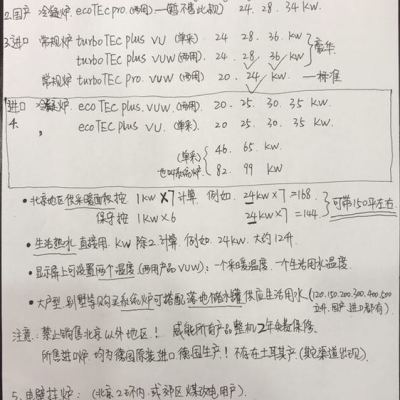 2.国产 冷凝炉 ecoTEC pro. (两用) —(暂不售此款) 24. 28. 34 kW.
3.进口 常规炉 turboTEC plus VU (单采) 24 28. 36. kW
turboTEC plus VUW (两用) 24. 28. 36 kW 豪华
常规炉 turboTEC pro. VUW (两用) 20. 24 kW —标准
进口 冷凝炉. ecoTEC plus. VUW (两用) 20. 25. 30. 35 kW.
4. ecoTEC plus VU. (单采) 20 25. 30. 35 kW.
(单采) 46. 65. kW
也叫系统炉 82. 99 kW
• 北京地区供采暖面积按 1kW×7 计算. 例如. 24kW×7=168. 可带150平左右
保守按 1kW×6 24kW×7=144.
• 生活热水 直接用. kW 除2计算. 例如. 24kW. 大约12升
• 显示屏上可设置两个温度 (两用产品VUW): 一个采暖温度. 一个生活用水温度
• 大户型. 别墅等购买系统炉可搭配落地储水罐供应生活用水 (120.150.200.300.400.500
立升. 国产.进口都有)
注意: 禁止销售北京以外地区! 威能所有产品整机2年免费保修.
所售进口炉 均为德国原装进口 德国生产! 不存在土耳其产. (其它渠道出现).
5. 电壁挂炉: (北京2环内. 或郊区煤改电用户).